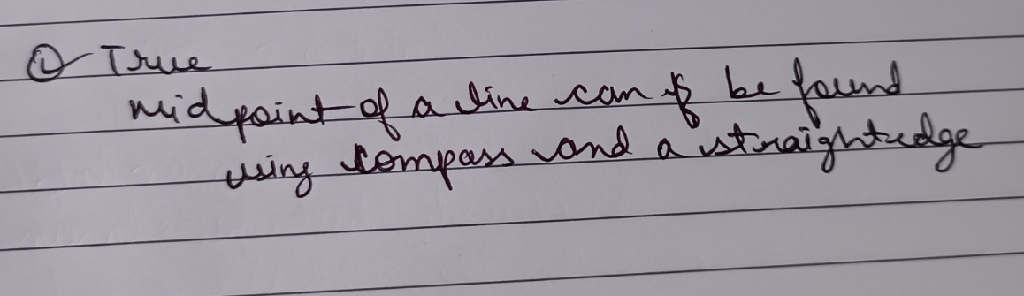 ① True
midpoint of a line can be found
using compass and a straightedge